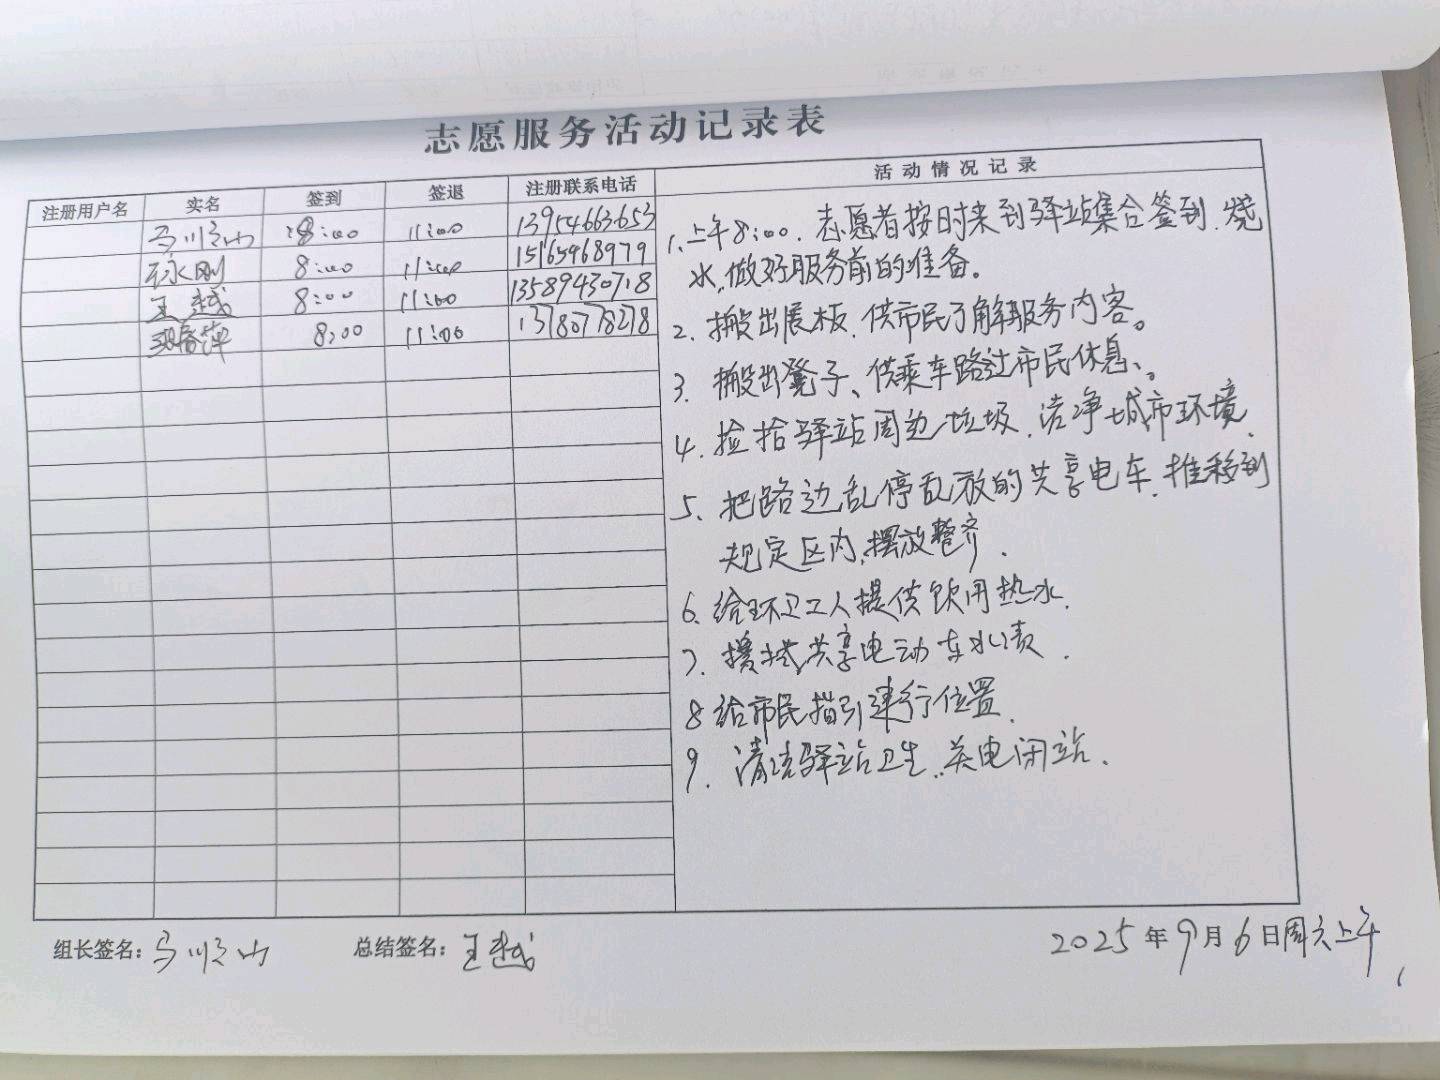 志愿服务活动记录表
注册用户名 实名 签到 签退 注册联系电话 活动情况记录
马顺山 8:00 11:00 13954663653
刚 8:00 11:00 15165468979
王越 8:00 11:00 13589430718
萍 8:00 11:00 13780778278
1、上午8:00. 志愿者按时来到驿站集合签到、烧
水,做好服务前的准备。
2、搬出展板、供市民了解服务内容。
3、搬出凳子、供乘车路过市民休息、。
4、捡拾驿站周边垃圾、洁净城市环境、
5、把路边乱停乱放的共享电车、推移到
规定区内,摆放整齐、
6、给环卫工人提供饮用热水、
7、擦拭共享电动车水渍、
8 给市民指引乘行位置、
9、清洁驿站卫生、关电闭站、
组长签名:马顺山 总结签名:王越 2025年9月6日周六上午